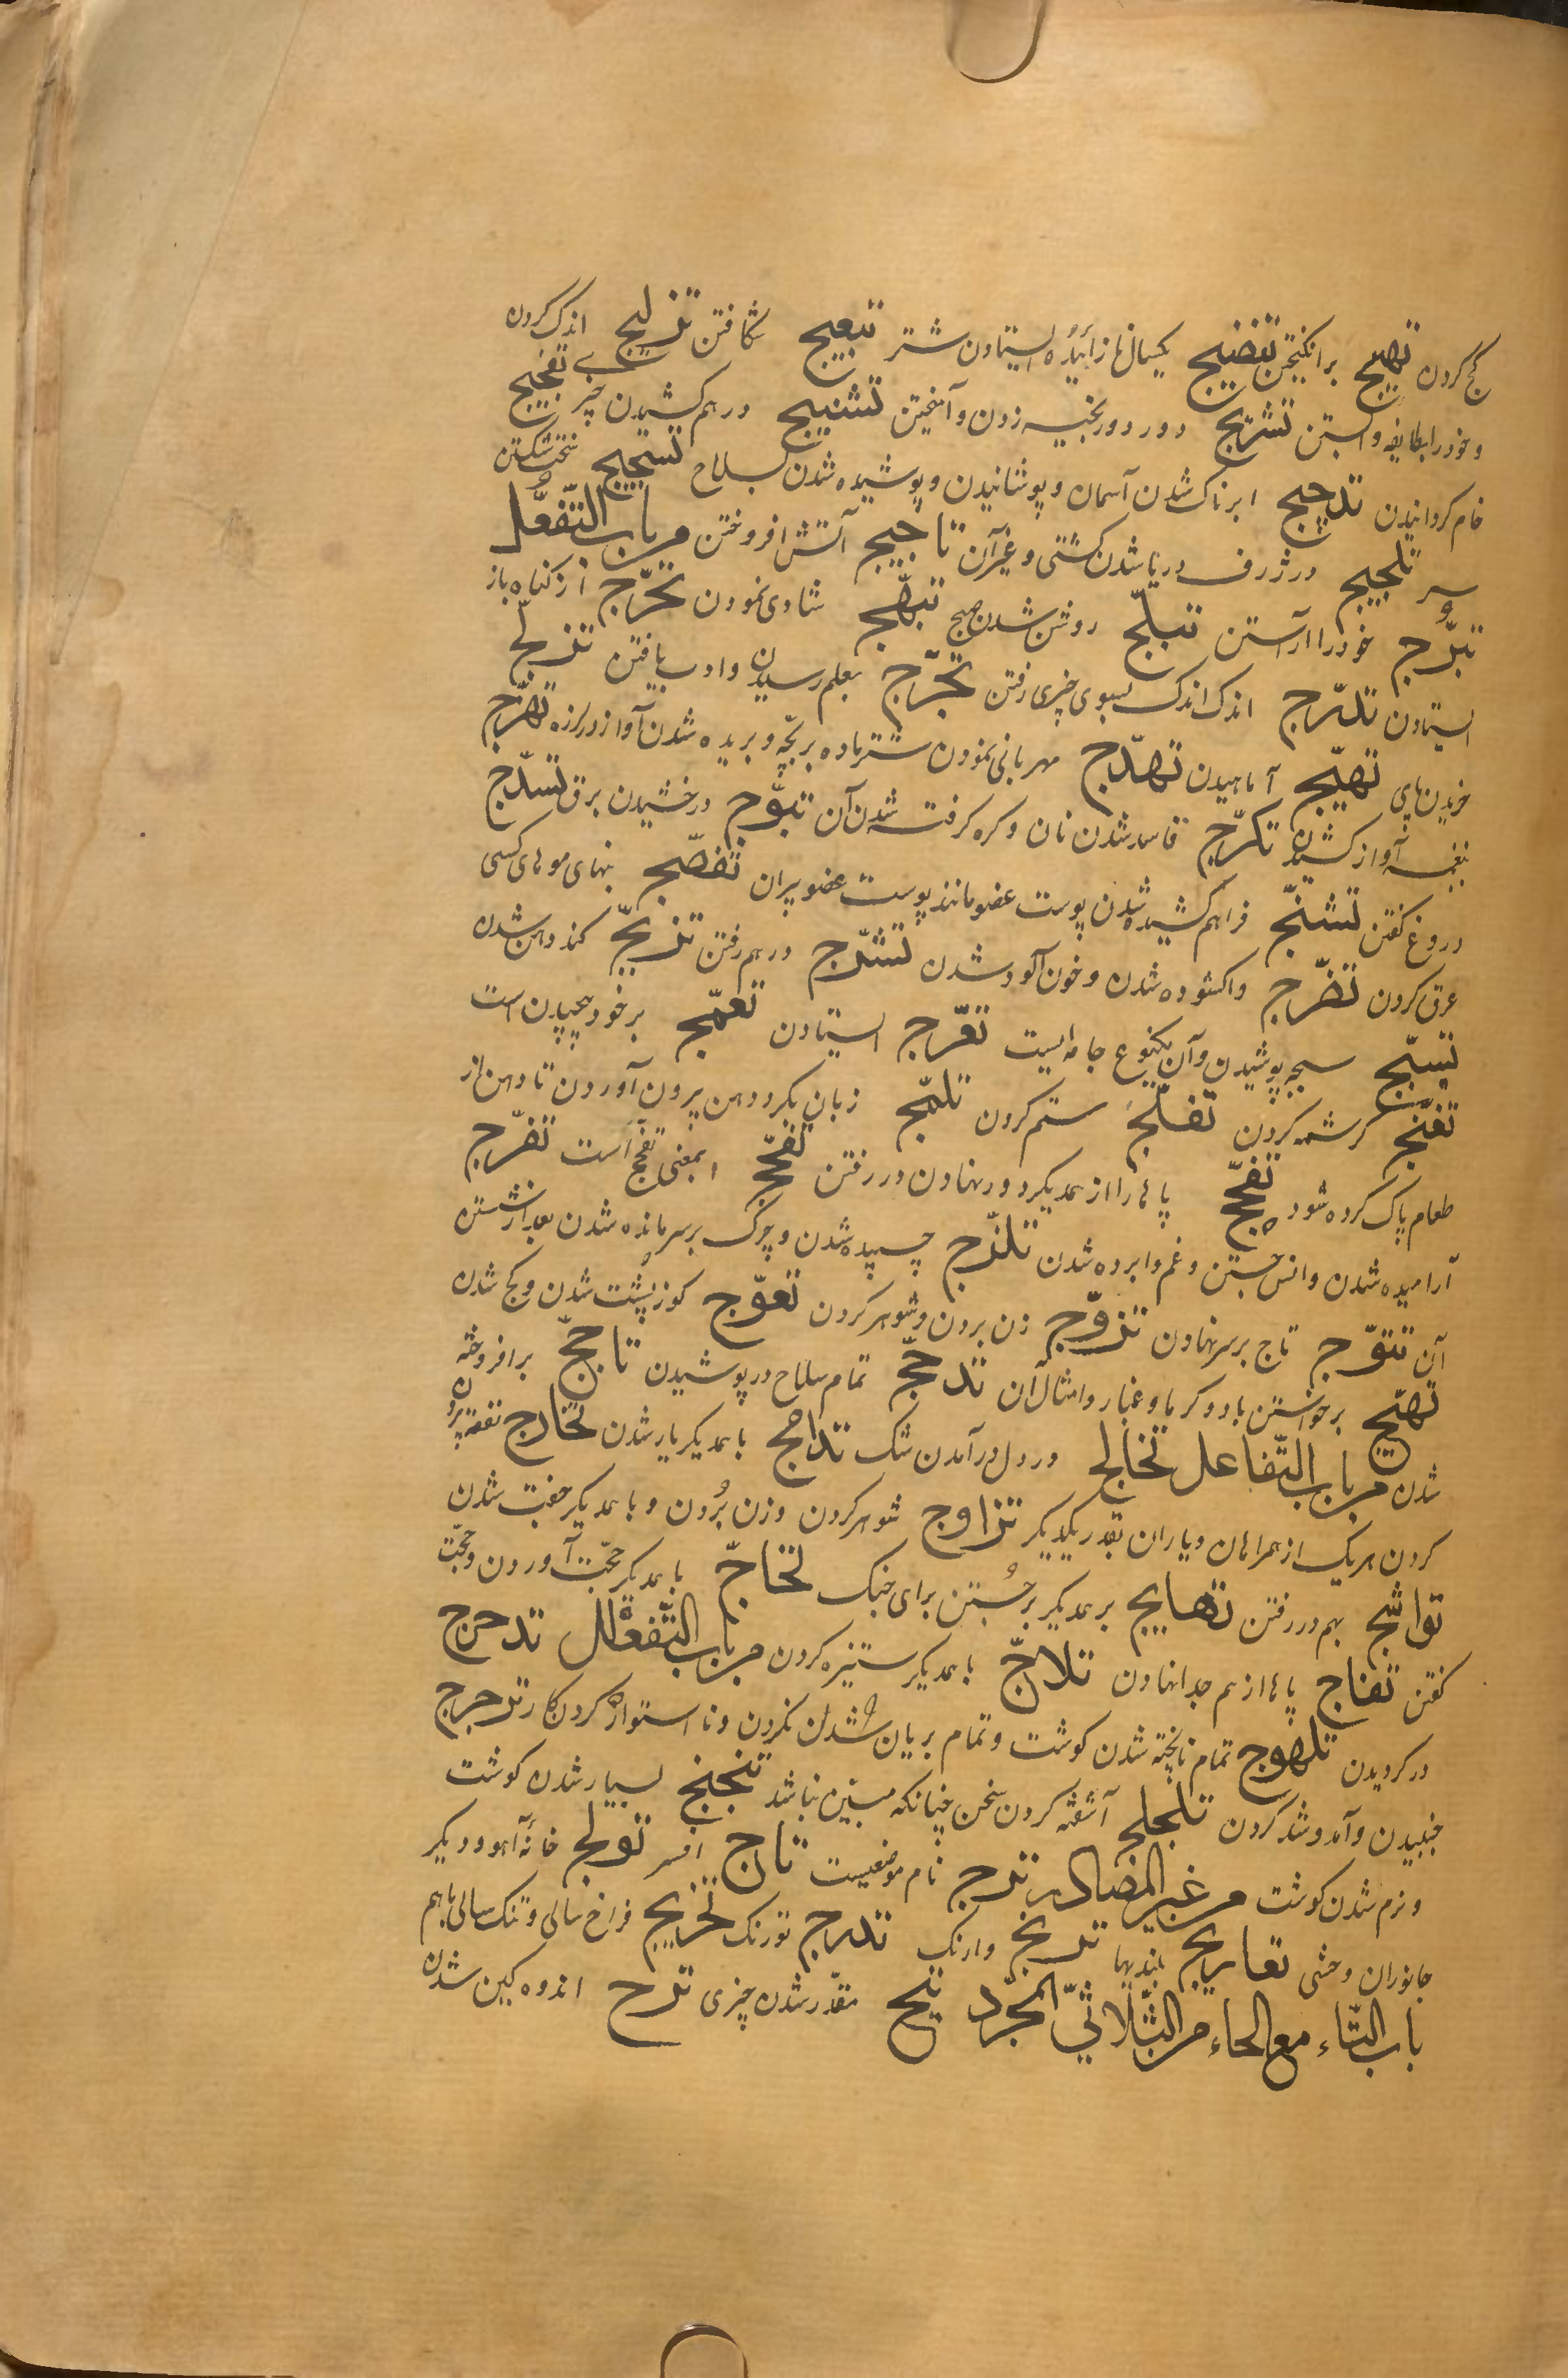 کج کردن تهییج برانکیختن تنضیج یکسال نازائیده ایستادن شتر تبعیج شکافتن تزلیج اندک کردن
و خود را بطایفه وابستن تشریج دور دور بخیه زدن و آمیختن تشنیج درهم کشیدن چیزی تفجیج
خام کردانیدن تدجیج ابرناک شدن آسمان و پوشانیدن و پوشیده شدن بسلاح تسجیج سخت شکستن
سر تلجیج در ژرف دریا شدن کشتی و غیر آن تاجیج آتش افروختن من باب التّفعّل
تبرّج خود را آراستن تبلّج روشن شدن صبح تبهّج شادی نمودن تحرّج از کناه باز
ایستادن تدرّج اندک اندک بسوی چیزی رفتن تخرّج بعلم رسیدن و ادب یافتن تزلّج
خزیدن پای تهیّج آماهیدن تهدّج مهربانی نمودن شتر ماده بر بچّه و بریده شدن آواز در لرزه تهزّج
بنغمه آواز کشیدن تکرّج فاسد شدن نان و کره کرفته شدن آن تبوّج درخشیدن برق تسدّج
دروغ کفتن تشنّج فراهم کشیده شدن پوست عضو مانند پوست عضو پیران تفضّج بنهای موهای کسی
عرق کردن تضرّج واکشوده شدن و خون آلود شدن تشرّج درهم رفتن تزبّج کند دهن شدن
تسبّج سبجه پوشیدن و آن یکنوع جامه ایست تعرّج ایستادن تعمّج بر خود پیچیدن است
تغنّج کرشمه کردن تفلّج ستم کردن تلمّج زبان بکرد دهن بیرون آوردن تا دهن از
طعام پاک کرده شود تفحّج پاها را از همدیکر دور نهادن در رفتن تفجّج بمعنی تفحّج است تفرّج
آرامیده شدن و انس جستن و غم وا برده شدن تلزّج چسپیده شدن و چرک بر سر مانده شدن بعد از شستن
آن تتوّج تاج بر سر نهادن تزوّج زن بردن و شوهر کردن تعوّج کوز پشت شدن و کج شدن
تهیّج برخواستن باد و کرما و غبار و امثال آن تدجّج تمام سلاح در پوشیدن تاجّج برافروخته
شدن من باب التّفاعل تخالج در دل در آمدن شک تدامج با همدیکر یار شدن تخارج نفقه بیرون
کردن هر یک از همراهان و یاران بقدر یکدیکر تزاوج شوهر کردن و زن بُردن و با همدیکر جفت شدن
تواشج بهم در رفتن تهایج بر همدیکر برجُستن برای جنک تحاجّ با همدیکر حجّت آوردن و حجّت
کفتن تفاج پاها از هم جدا نهادن تلاجّ با همدیکر ستیزه کردن من باب التّفعلل تدحرج
در کردیدن تلهوج تمام ناپخته شدن کوشت و تمام بریان شدن نکردن و نا استوار کردن کار ترجرج
جنبیدن و آمد و شد کردن تلجلج آشفته کردن سخن چنانکه مبیّن نباشد تنجنج بسیار شدن کوشت
و نرم شدن کوشت من غیر المصادر ترج نام موضعیست تاج افسر تولج خانهٔ آهو و دیکر
جانوران وحشی تعاریج بلندیها ترنج وارنک تدرج تورنک تخریج فراخ سالی و تنک سالی باهم
باب التّاء مع الحاء من الثّلاثیّ المجرّد تیح مقدّر شدن چیزی ترح اندوهکین شدن